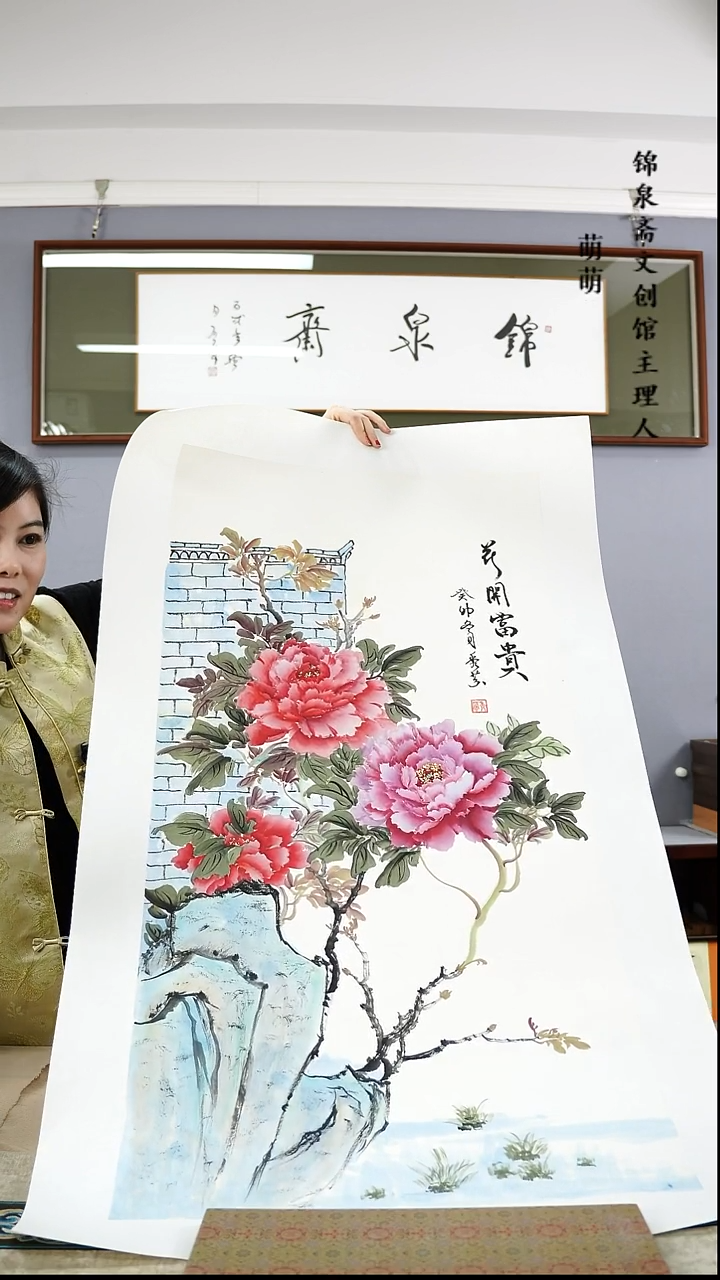 锦泉斋文创馆主理人
萌萌
錦泉齋
花開富貴
癸卯